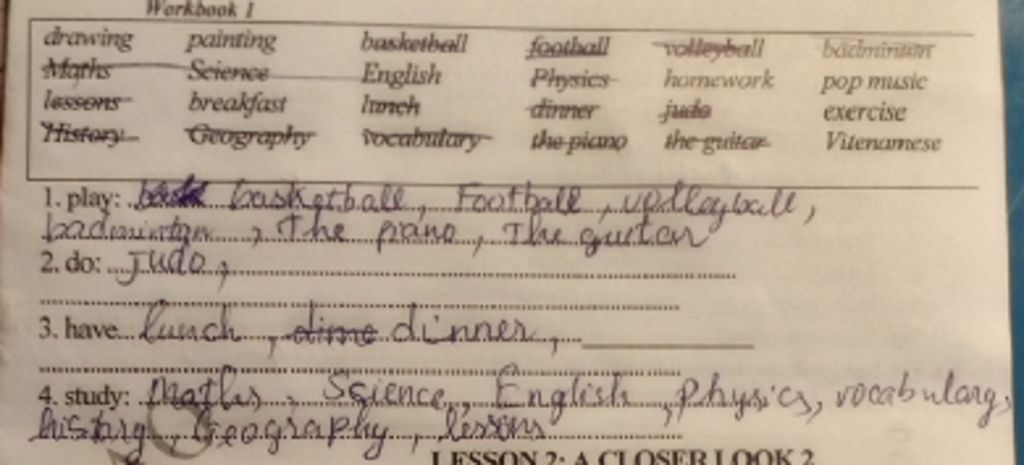 Workbook 1
drawing painting basketball football volleyball badminton
Maths Science English Physics homework pop music
lessons breakfast lunch dinner judo exercise
History Geography vocabulary the piano the guitar Vitenamese
1. play: basketball, Football, volleyball,
badminton, The piano, The guitar
2. do: Judo,
3. have lunch, dinner,
4. study: Maths, Science, English, Physics, vocabulary,
history, Geography, lessons
LESSON 2: A CLOSER LOOK 2